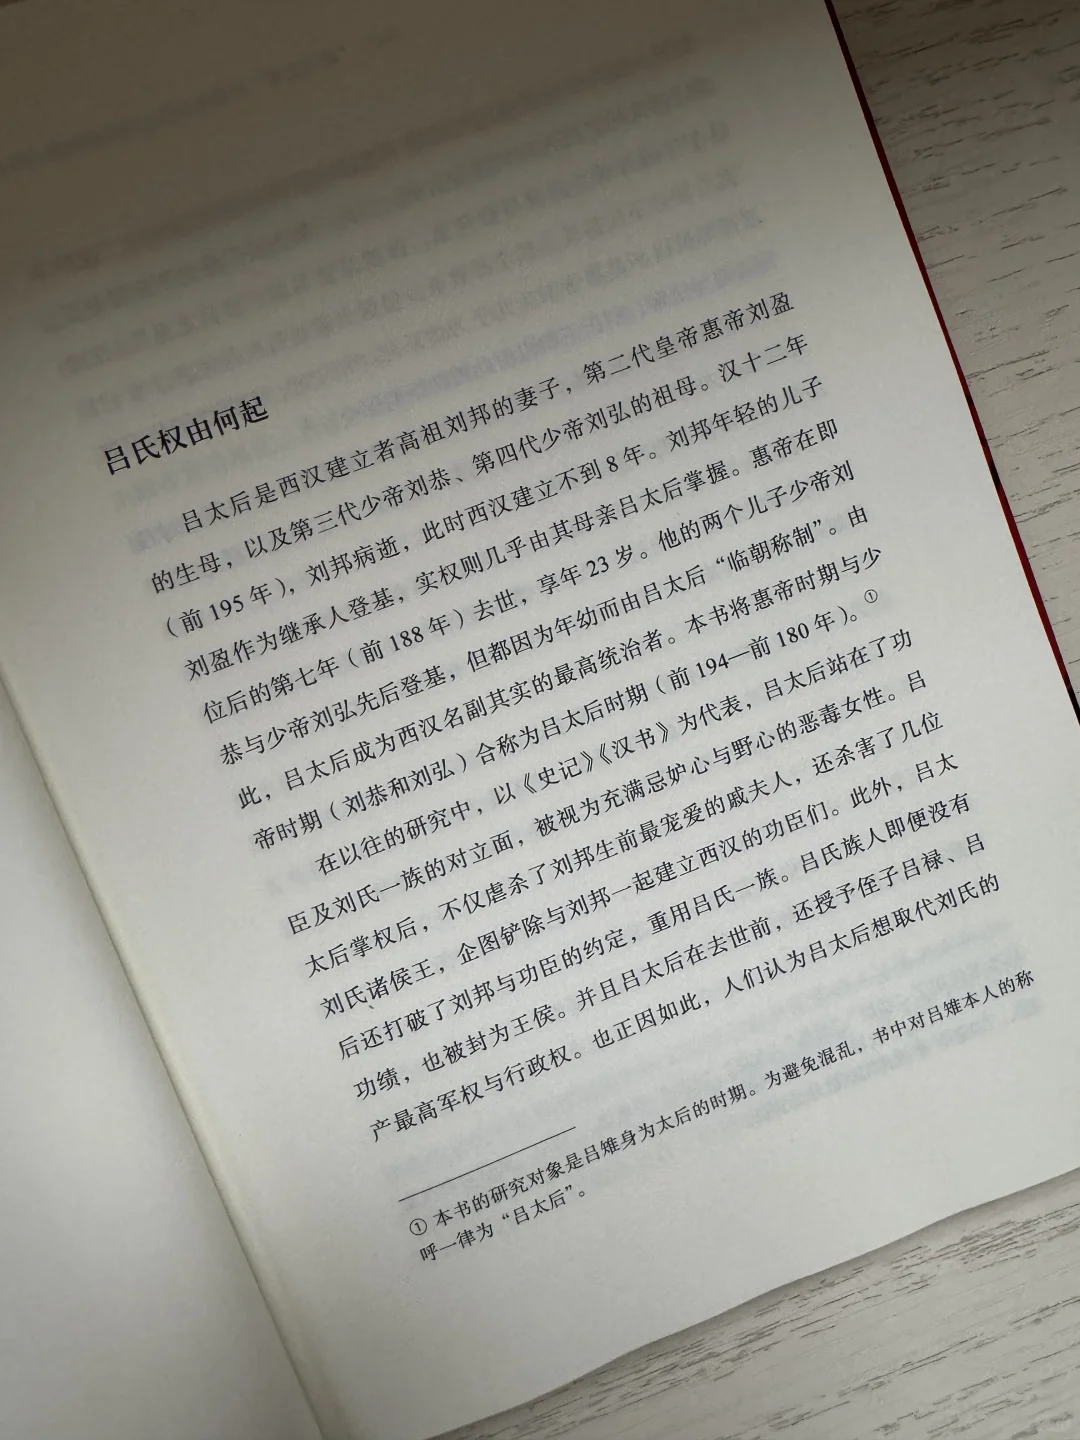 吕氏权由何起
吕太后是西汉建立者高祖刘邦的妻子，第二代皇帝惠帝刘盈
的生母，以及第三代少帝刘恭、第四代少帝刘弘的祖母。汉十二年
（前 195 年），刘邦病逝，此时西汉建立不到 8 年。刘邦年轻的儿子
刘盈作为继承人登基，实权则几乎由其母亲吕太后掌握。惠帝在即
位后的第七年（前 188 年）去世，享年 23 岁。他的两个儿子少帝刘
恭与少帝刘弘先后登基，但都因为年幼而由吕太后“临朝称制”。由
此，吕太后成为西汉名副其实的最高统治者。本书将惠帝时期与少
帝时期（刘恭和刘弘）合称为吕太后时期（前 194—前 180 年）。①
在以往的研究中，以《史记》《汉书》为代表，吕太后站在了功
臣及刘氏一族的对立面，被视为充满忌妒心与野心的恶毒女性。吕
太后掌权后，不仅虐杀了刘邦生前最宠爱的戚夫人，还杀害了几位
刘氏诸侯王，企图铲除与刘邦一起建立西汉的功臣们。此外，吕太
后还打破了刘邦与功臣的约定，重用吕氏一族。吕氏族人即便没有
功绩，也被封为王侯。并且吕太后在去世前，还授予侄子吕禄、吕
产最高军权与行政权。也正因如此，人们认为吕太后想取代刘氏的
① 本书的研究对象是吕雉身为太后的时期。为避免混乱，书中对吕雉本人的称
呼一律为“吕太后”。